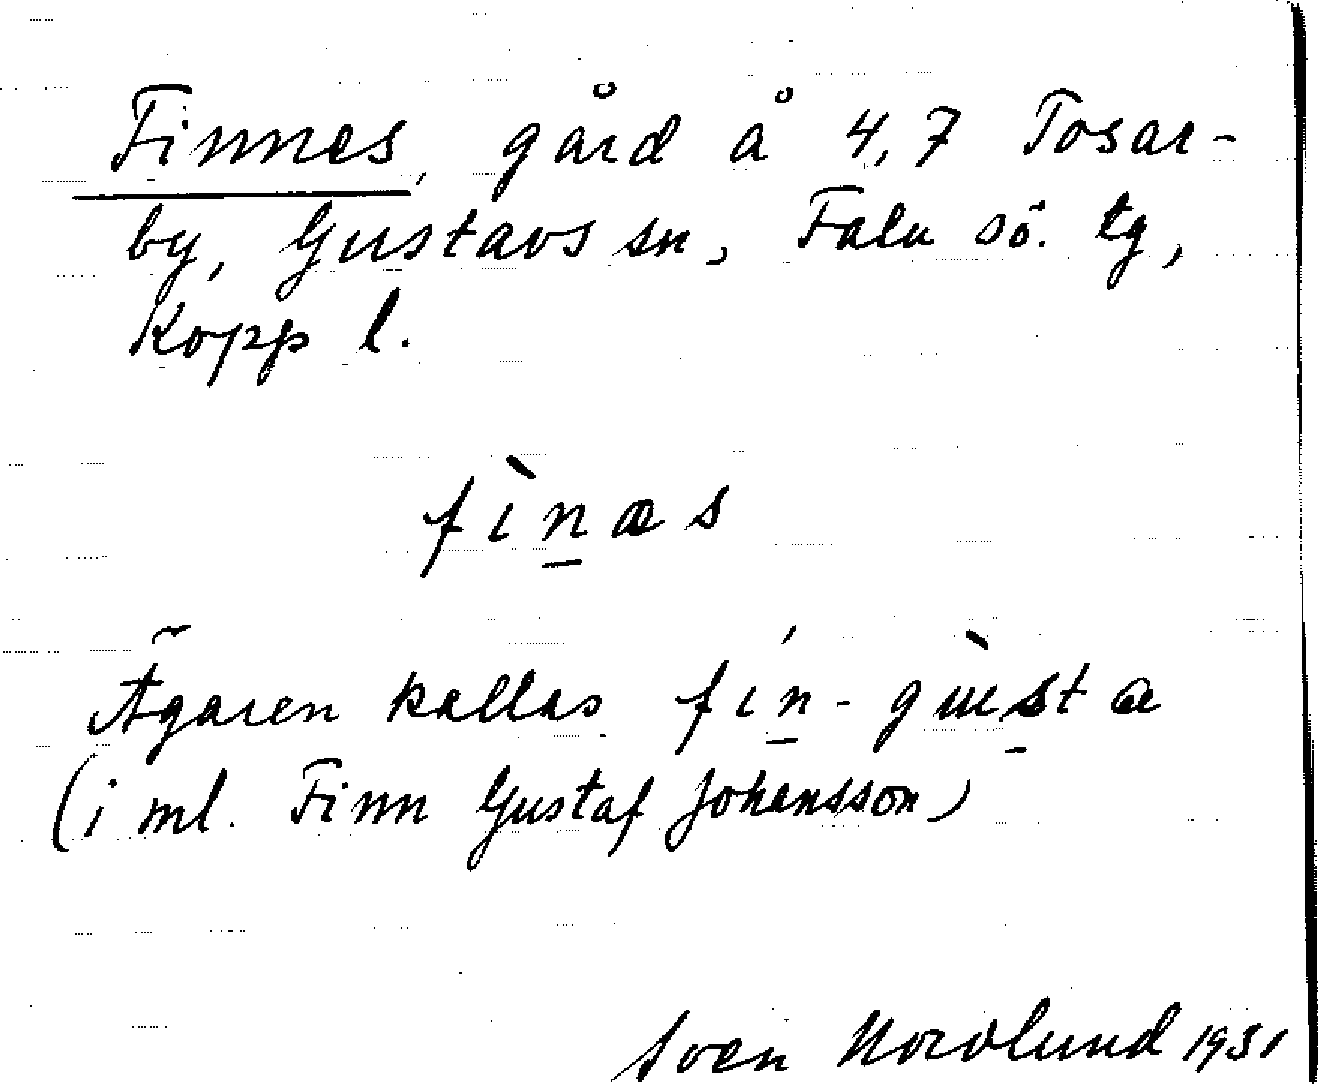 Finnes, gård å 4,7 Tosar-
by, Gustavs sn, Falu sö. tg,
Kopp l.
fìn̲æs
Ägaren kallas fín̲-gɯ̀s̲ta
(i ml. Finn Gustaf Johansson)
Sven Nordlund 1931